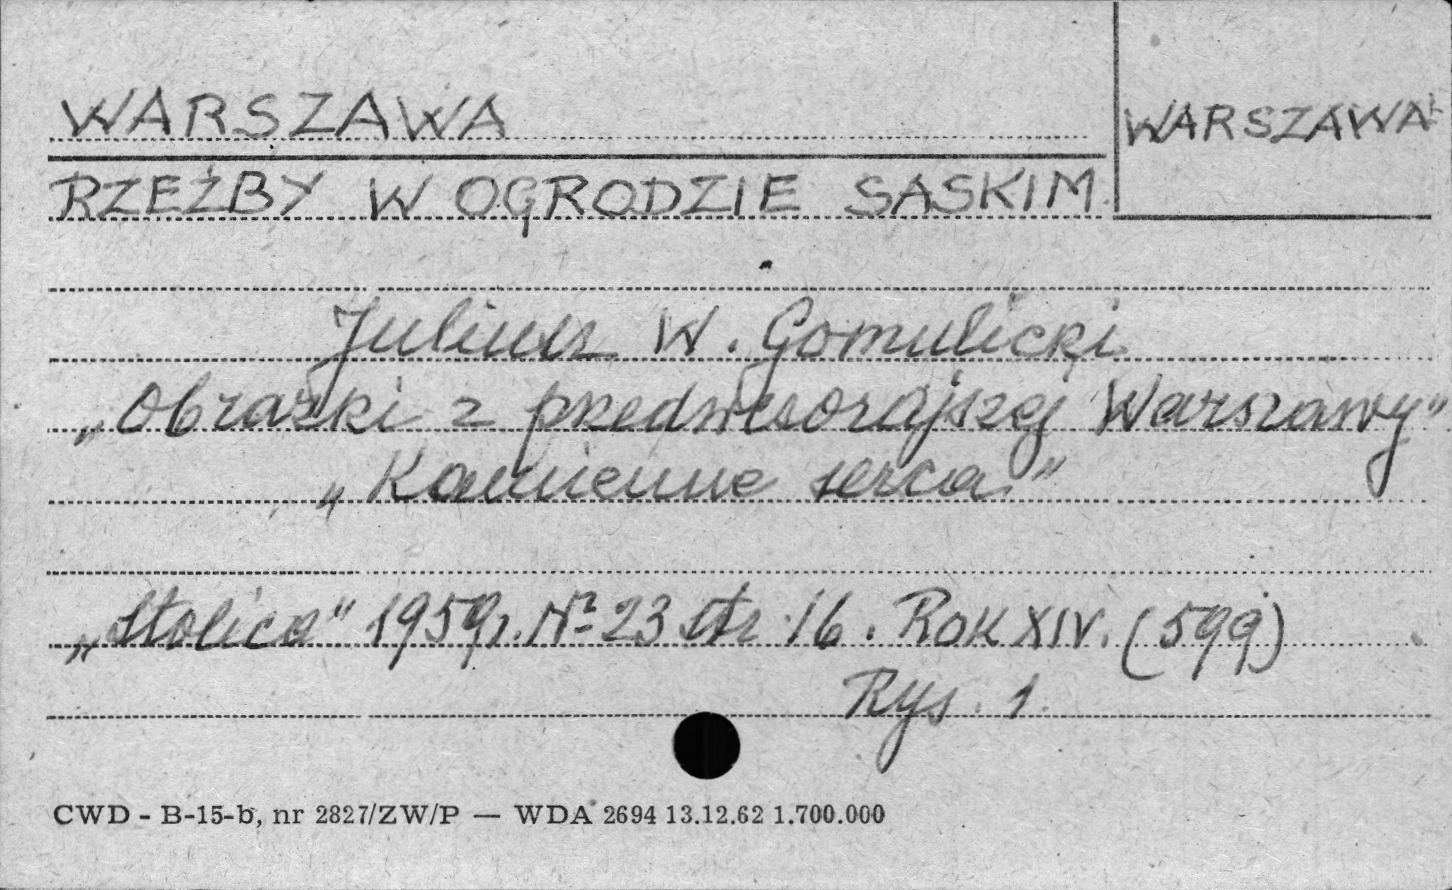 WARSZAWA
WARSZAWA
RZEŹBY W OGRODZIE SASKIM
Juliusz W. Gomulicki
„Obrazki z przedwczorajszej Warszawy"
„Kamienne serca"
„Stolica" 1959r. Nr 23 str 16. ROK XIV. (599)
Rys. 1.
CWD - B-15-b, nr 2827/ZW/P — WDA 2694 13.12.62 1.700.000